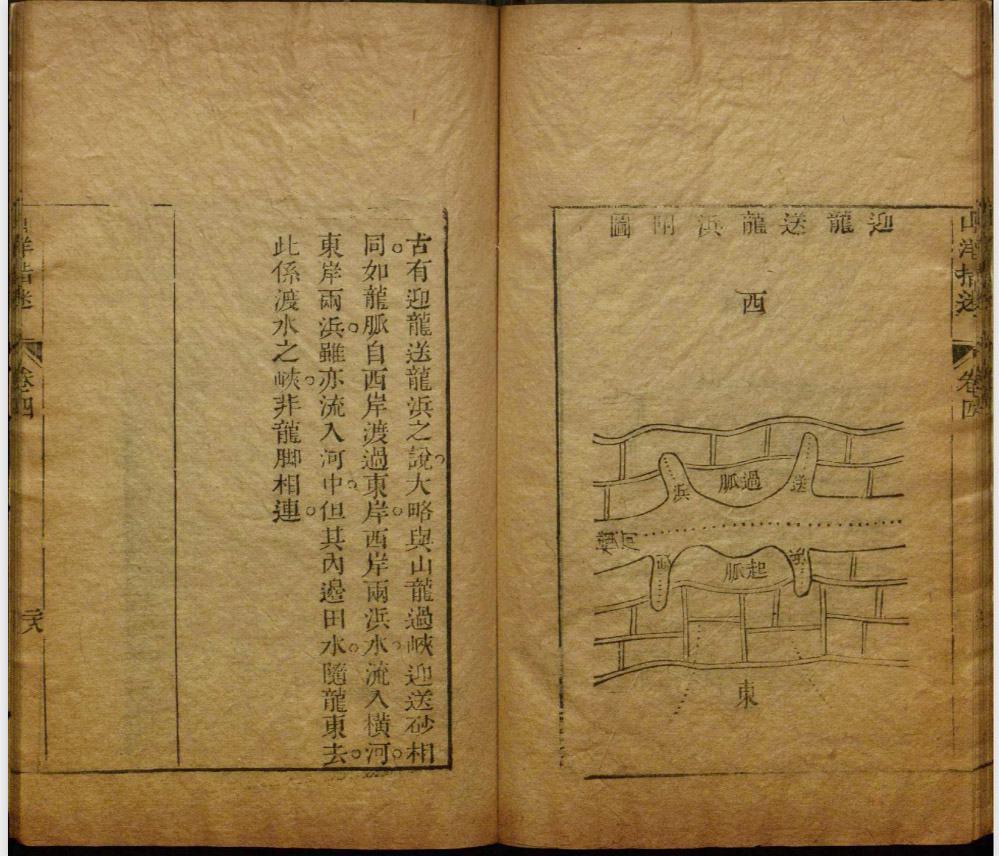 迎龍送龍浜明圖
西
送
過脈
浜
迎
起脈
東
山洋指迷
卷四
古有迎龍送龍浜之說大略與山龍過峽迎送砂相
同如龍脈自西岸渡過東岸西岸兩浜水流入橫河
東岸兩浜雖亦流入河中但其內邊田水隨龍東去
此係渡水之峽非龍脚相連
洋指迷
卷四